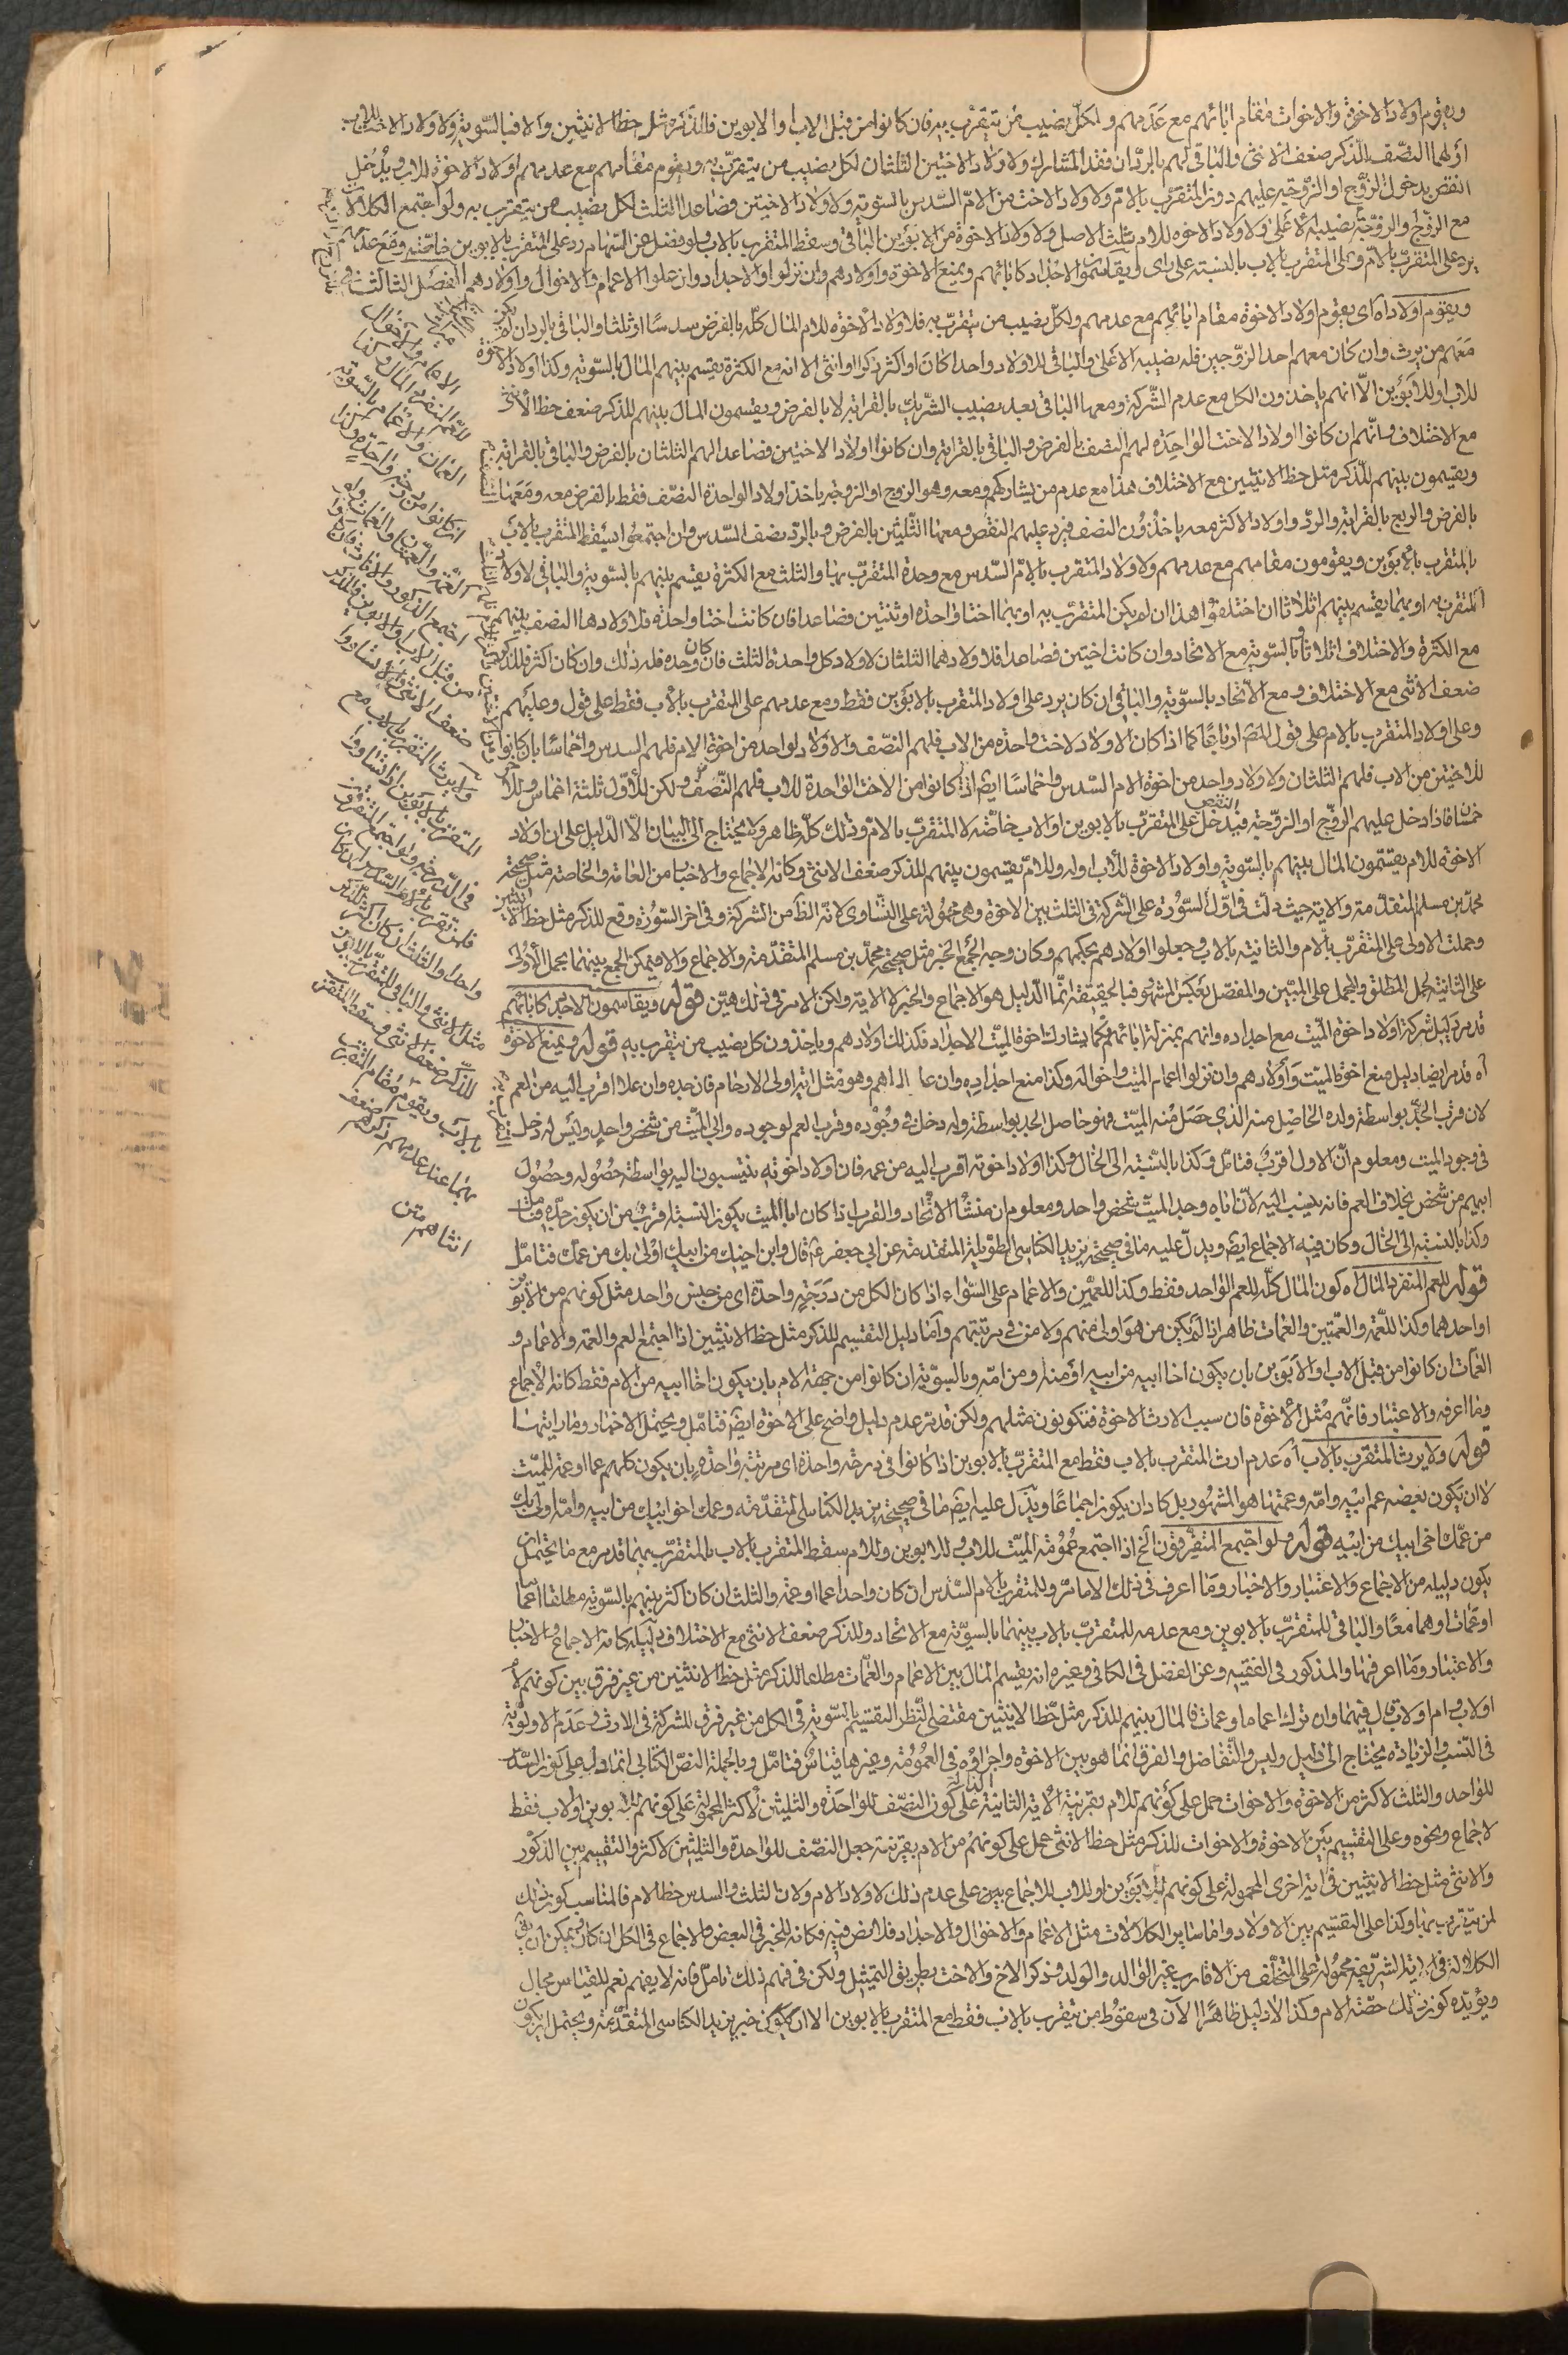 ويقوم اولاد الاخوة والاخوات مقام ابائهم مع عدمهم ولكل نصيب من يتقرب به فان كانوا من قبل الاب او الابوين فللذكر مثل حظ الانثيين والا فبالسوية ولاولاد الاخت للاب
او لهما النصف للذكر ضعف الانثى والباقي لهم بالرد ان فقد المشارك ولاولاد الاختين الثلثان لكل نصيب من يتقرب به ويقوم مقامهم مع عدمهم اولاد الاخوة للاب ويدخل
النقص بدخول الزوج او الزوجة عليهم دون المتقرب بالام ولاولاد الاخت من الام السدس بالسوية ولاولاد الاختين فصاعدا الثلث لكل نصيب من يتقرب به ولو اجتمع الكلالات
مع الزوج والزوجة نصيبه الاعلى ولاولاد الاخوة للام ثلث الاصل ولاولاد الاخوة من الابوين الباقي وسقط المتقرب بالاب ولو فضل عن السهام رد على المتقرب بالابوين خاصة ومع عدمهم
يرد على المتقرب بالام وعلى المتقرب بالاب بالنسبة على راى ويقاسمون الاجداد كابائهم ويمنع الاخوة واولادهم وان نزلوا والاجداد وان علوا الاعمام والاخوال واولادهم الفصل الثالث في
ويقوم اولاد اه اى يقوم اولاد الاخوة مقام ابائهم مع عدمهم ولكل نصيب من يتقرب به فلاولاد الاخوة للام المال كله بالفرض سدسا او ثلثا والباقي بالرد ان لم يكن
معهم من يرث وان كان معهم احد الزوجين فله نصيبه الاعلى والباقي للاولاد واحدا كان او اكثر ذكرا او انثى الا انه مع الكثرة يقسم بينهم المال بالسوية وكذا اولاد الاخوة
للاب او للابوين الا انهم ياخذون الكل مع عدم الشركة ومعها الباقي بعد نصيب الشريك بالقرابة لا بالفرض ويقسمون المال بينهم للذكر ضعف حظ الانثى
مع الاختلاف وانهم ان كانوا اولاد الاخت الواحدة لهم النصف بالفرض والباقي بالقرابة وان كانوا اولاد الاختين فصاعدا لهم الثلثان بالفرض والباقي بالقرابة
ويقسمون بينهم للذكر مثل حظ الانثيين مع الاختلاف هذا مع عدم من يشاركهم ومعه وهو الزوج او الزوجة ياخذ اولاد الواحدة النصف فقط بالفرض معه ومعها
بالفرض والربع بالقرابة والرد واولاد الاكثر معه ياخذون النصف فيرد عليهم النقص ومعها الثلثين بالفرض وبالرد نصف السدس وان اجتمعوا سقط المتقرب بالاب
بالمتقرب بالابوين ويقومون مقامهم مع عدمهم ولاولاد المتقرب بالام السدس مع وحدة المتقرب بها والثلث مع الكثرة يقسم بينهم بالسوية والباقي لاولاد
المتقرب به او بهما يقسم بينهم اثلاثا ان اختلفوا هذا ان لم يكن المتقرب به او بهما اختا واحدة او ثنتين فصاعدا فان كانت اختا واحدة فلاولادها النصف بينهم
مع الكثرة والاختلاف اثلاثا وبالسوية مع الاتحاد وان كانت اختين فصاعدا فلاولادهما الثلثان لاولاد كل واحدة الثلث فان كان وحده فله ذلك وان كان اكثر فللذكر
ضعف الانثى مع الاختلاف ومع الاتحاد بالسوية والباقي ان كان يرد على اولاد المتقرب بالابوين فقط ومع عدمهم على المتقرب بالاب فقط على قول وعليهم
وعلى اولاد المتقرب بالام على قول المص ارباعا كما اذا كان الاولاد لاخت واحدة من الاب فلهم النصف والاولاد لواحد من اخوة الام فلهم السدس واخماسا بان كانوا
للاختين من الاب فلهم الثلثان ولاولاد واحد من اخوة الام السدس واخماسا ايض اذا كانوا من الاخت الواحدة للاب فلهم النصف ولكن للاول ثلثة اخماس وللاخر
خمسان فاذا دخل عليهم الزوج او الزوجة فيدخل النقص على المتقرب بالابوين او الاب خاصة لا المتقرب بالام وذلك كله ظاهر ولا يحتاج الى البيان الا الدليل على ان اولاد
الاخوة للام يقتسمون المال بينهم بالسوية واولاد الاخوة للاب اوله وللام يقسمون بينهم للذكر ضعف الانثى وكانه الاجماع والاخبار من العامة والخاصة مثل صحيحة
محمد بن مسلم المتقدمة والاية حيث دلت في اول السورة على الشركة في الثلث بين الاخوة وهي محمولة على التساوى لانه الظ من الشركة وفي اخر السورة وقع للذكر مثل حظ الانثيين
وحملت الاولى على المتقرب بالام والثانية بالاب وجعلوا اولادهم بحكمهم وكان وجه الجمع الخبر مثل صحيحة محمد بن مسلم المتقدمة والاجماع والا فيمكن الجمع بينهما بحمل الاولى
على الثانية لحمل المطلق والمجمل على المبين والمفصل بعكس المشهور فبالحقيقة انما الدليل هو الاجماع والخبر لا الاية ولكن الامر في ذلك هين قوله ويقاسمون الاجداد كابائهم
قد مر دليل شركة اولاد اخوة الميت مع اجداده وانهم بمنزلة ابائهم فكما يشارك اخوة الميت الاجداد فكذلك اولادهم وياخذون كل نصيب من يتقرب به قوله ويمنع الاخوة
اه قد مر ايضا دليل منع اخوة الميت واولادهم وان نزلوا اعمام الميت واخواله وكذا منع اجداده وان علوا اياهم وهو مثل اية اولى الارحام فان جده وان علا اقرب اليه من العم
لان قرب الجد بواسطة ولده الحاصل منه الذي حصل منه الميت فهو حاصل الجد بواسطة وله دخل في وجوده وقرب العم لوجوده وابي الميت من شخص واحد وليس له دخل
في وجود الميت ومعلوم ان الاول اقرب فتامل وكذا بالنسبة الى الخال وكذا اولاد اخوته اقرب اليه من عمه فان اولاد اخوته ينتسبون اليه بواسطة حصوله وحصول
ابيهم من شخص بخلاف العم فانه ينسب اليه لان اباه وجد الميت شخص واحد ومعلوم ان منشأ الاتحاد والقرب اذا كان ابا الميت يكون النسبة اقرب من ان يكون جده فتامل
وكذا بالنسبة الى الخال وكان فيه الاجماع ايض ويدل عليه ما في صحيحة يزيد الكناسي الطويلة المتقدمة عن ابي جعفر ع قال وابن اخيك من ابيك اولى بك من عمك فتامل
قوله للعم المنفرد المال اه كون المال كله للعم الواحد فقط وكذا للعمين والاعمام على السواء اذا كان الكل من درجة واحدة اى من جنس واحد مثل كونهم من الابوين
او احدهما وكذا للعمة والعمتين والعمات ظاهر اذا لم يكن من هو اولى منهم ولا من في مرتبتهم واما دليل التقسيم للذكر مثل حظ الانثيين اذا اجتمع العم والعمة والاعمام و
العمات ان كانوا من قبل الاب والابوين بان يكون اخا ابيه من ابيه او منه ومن امه وبالسوية ان كانوا من جهة الام بان يكون اخا ابيه من الام فقط كانه الاجماع
وما اعرفه والاعتبار فانهم مثل الاخوة فان سبب الارث الاخوة فتكونون مثلهم ولكن قد مر عدم دليل واضح على الاخوة ايض فتامل ويحتمل الاخبار وما رايتها
قوله ولا يرث المتقرب بالاب اه عدم ارث المتقرب بالاب فقط مع المتقرب بالابوين اذا كانوا في درجة واحدة اى مرتبة واحدة بان يكون كلهم عما او عمة للميت
لا ان يكون بعضه عم ابيه وامه وعمتها هو المشهور بل كاد ان يكون اجماعا ويدل عليه ايض ما في صحيحة يزيد الكناسي المتقدمة وعمك اخو ابيك من ابيه وامه اولى بك
من عمك اخى ابيك من ابيه قوله ولو اجتمع المتفرقون الخ اذا اجتمع عمومة الميت للاب وللابوين وللام سقط المتقرب بالاب بالمتقرب بهما قد مر مع ما يحتمل ان
يكون دليله من الاجماع والاعتبار والاخبار وما اعرف في ذلك الا ما مر وللمتقرب بالام السدس ان كان واحدا عما او عمة والثلث ان كان اكثر بينهم بالسوية مطلقا اعماما
او عمات او هما معا والباقي للمتقرب بالابوين ومع عدمه للمتقرب بالاب بينهما بالسوية مع الاتحاد وللذكر ضعف الانثى مع الاختلاف دليله كانه الاجماع والاخبار
والاعتبار وما اعرفها والمذكور في الفقيه وعن الفضل في الكافي وغيره انه يقسم المال بين الاعمام والعمات مطلقا للذكر مثل حظ الانثيين من غير فرق بين كونهم لاب
او لاب وام او لام قال فيهما وان ترك اعماما وعمات فالمال بينهم للذكر مثل حظ الانثيين مقتضى النظر التقسيم بالسوية في الكل من غير فرق للشركة في الارث وعدم الاولوية
في النسب والزيادة يحتاج الى دليل وليس والتفاضل والفرق انما هو بين الاخوة واجراؤه في العمومة وغيرها قياس فتامل وبالجملة النص الكتابي انما دل على كون السدس
للواحد والثلث لاكثر من الاخوة والاخوات حمل على كونهم للام بقرينة الاية الثانية الدالة على كون النصف للواحدة والثلثين لاكثر المحمولة على كونهم للابوين او لاب فقط
لاجماع ونحوه وعلى التقسيم بين الاخوة والاخوات للذكر مثل حظ الانثى حمل على كونهم من الام بقرينة جعل النصف للواحدة والثلثين لاكثر والتقسيم بين الذكور
والانثى مثل حظ الانثيين في اية اخرى المحمولة على كونهم للابوين او للاب للاجماع بين على عدم ذلك لاولاد الام ولان الثلث والسدس حظ الام فالمناسب كون ذلك
لمن يتقرب بها وكذا على التقسيم بين الاولاد واما سائر الكلالات مثل الاعمام والاخوال والاجداد فلا نص فيه فكانه للخبر في البعض والاجماع في الكل ان كان يمكن ان يق
الكلالة في الاية الشريفة محمولة على المتخلف من الاقارب غير الوالد والولد وذكر الاخ والاخت بطريق التمثيل ولكن في فهم ذلك تامل فانه لا يفهم نعم للقياس مجال
ويؤيده كون ذلك حصة الام وكذا لا دليل ظاهرا الان في سقوط من يتقرب بالاب فقط مع المتقرب بالابوين الا ان يكون في خبر يزيد الكناسي المتقدمة ويحتمل ان يكون
الاعمام والاخوال
للعم المنفرد المال وكذا
العمان والاعمام بالسوية
ان كانوا من درجة واحدة وكذا
العمة والعمتان والعمات ولو
اجتمع الذكور والاناث فان كانوا
من قبل الاب او الابوين فللذكر
ضعف الانثى والا تساووا
ولا يرث المتقرب بالاب مع
المتقرب بالابوين اذا تساووا
في الدرجة ولو اجتمع المتفرقون
فلمن تقرب بالام السدس ان كان
واحدا والثلث ان كان اكثر للذكر
مثل الانثى والباقي للمتقرب بالابوين
للذكر ضعف الانثى وسقط المتقرب
بالاب ويقوم مقام المتقرب
بهما عند عدمهم للذكر ضعف
انثاهم متن